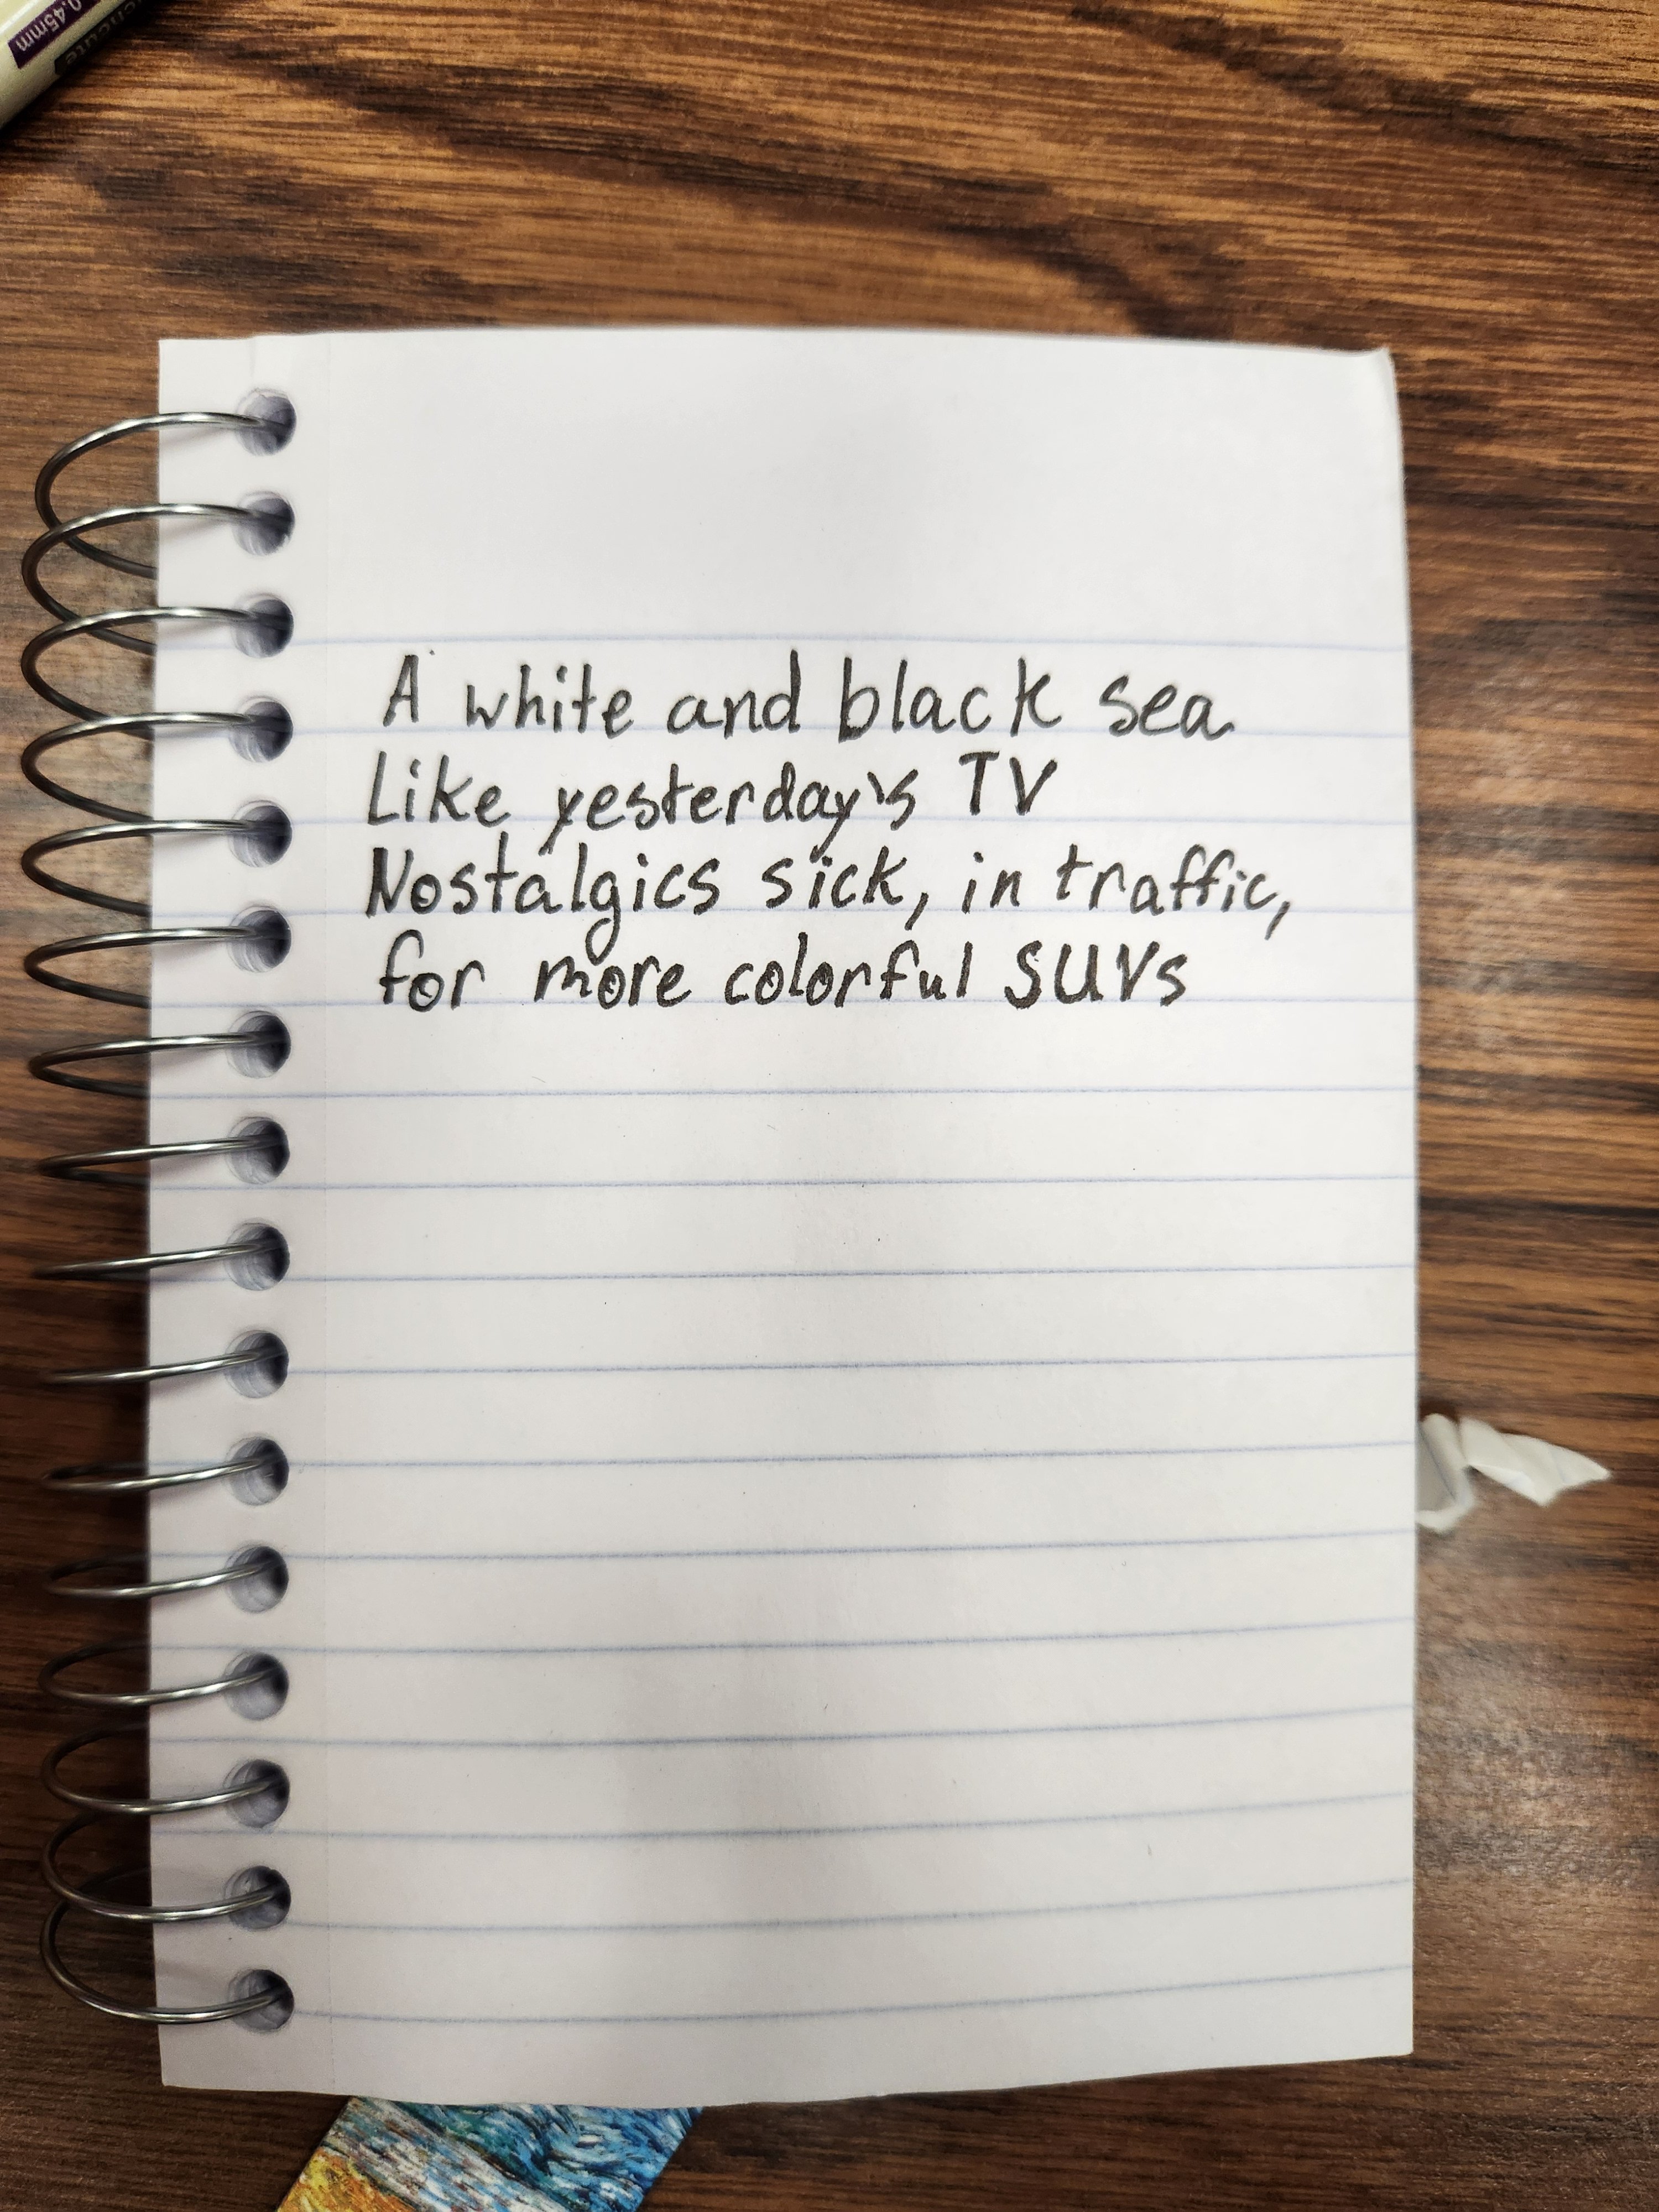 0.45mm
A white and black sea
Like yesterday's TV
Nostalgics sick, in traffic,
for more colorful SUVs